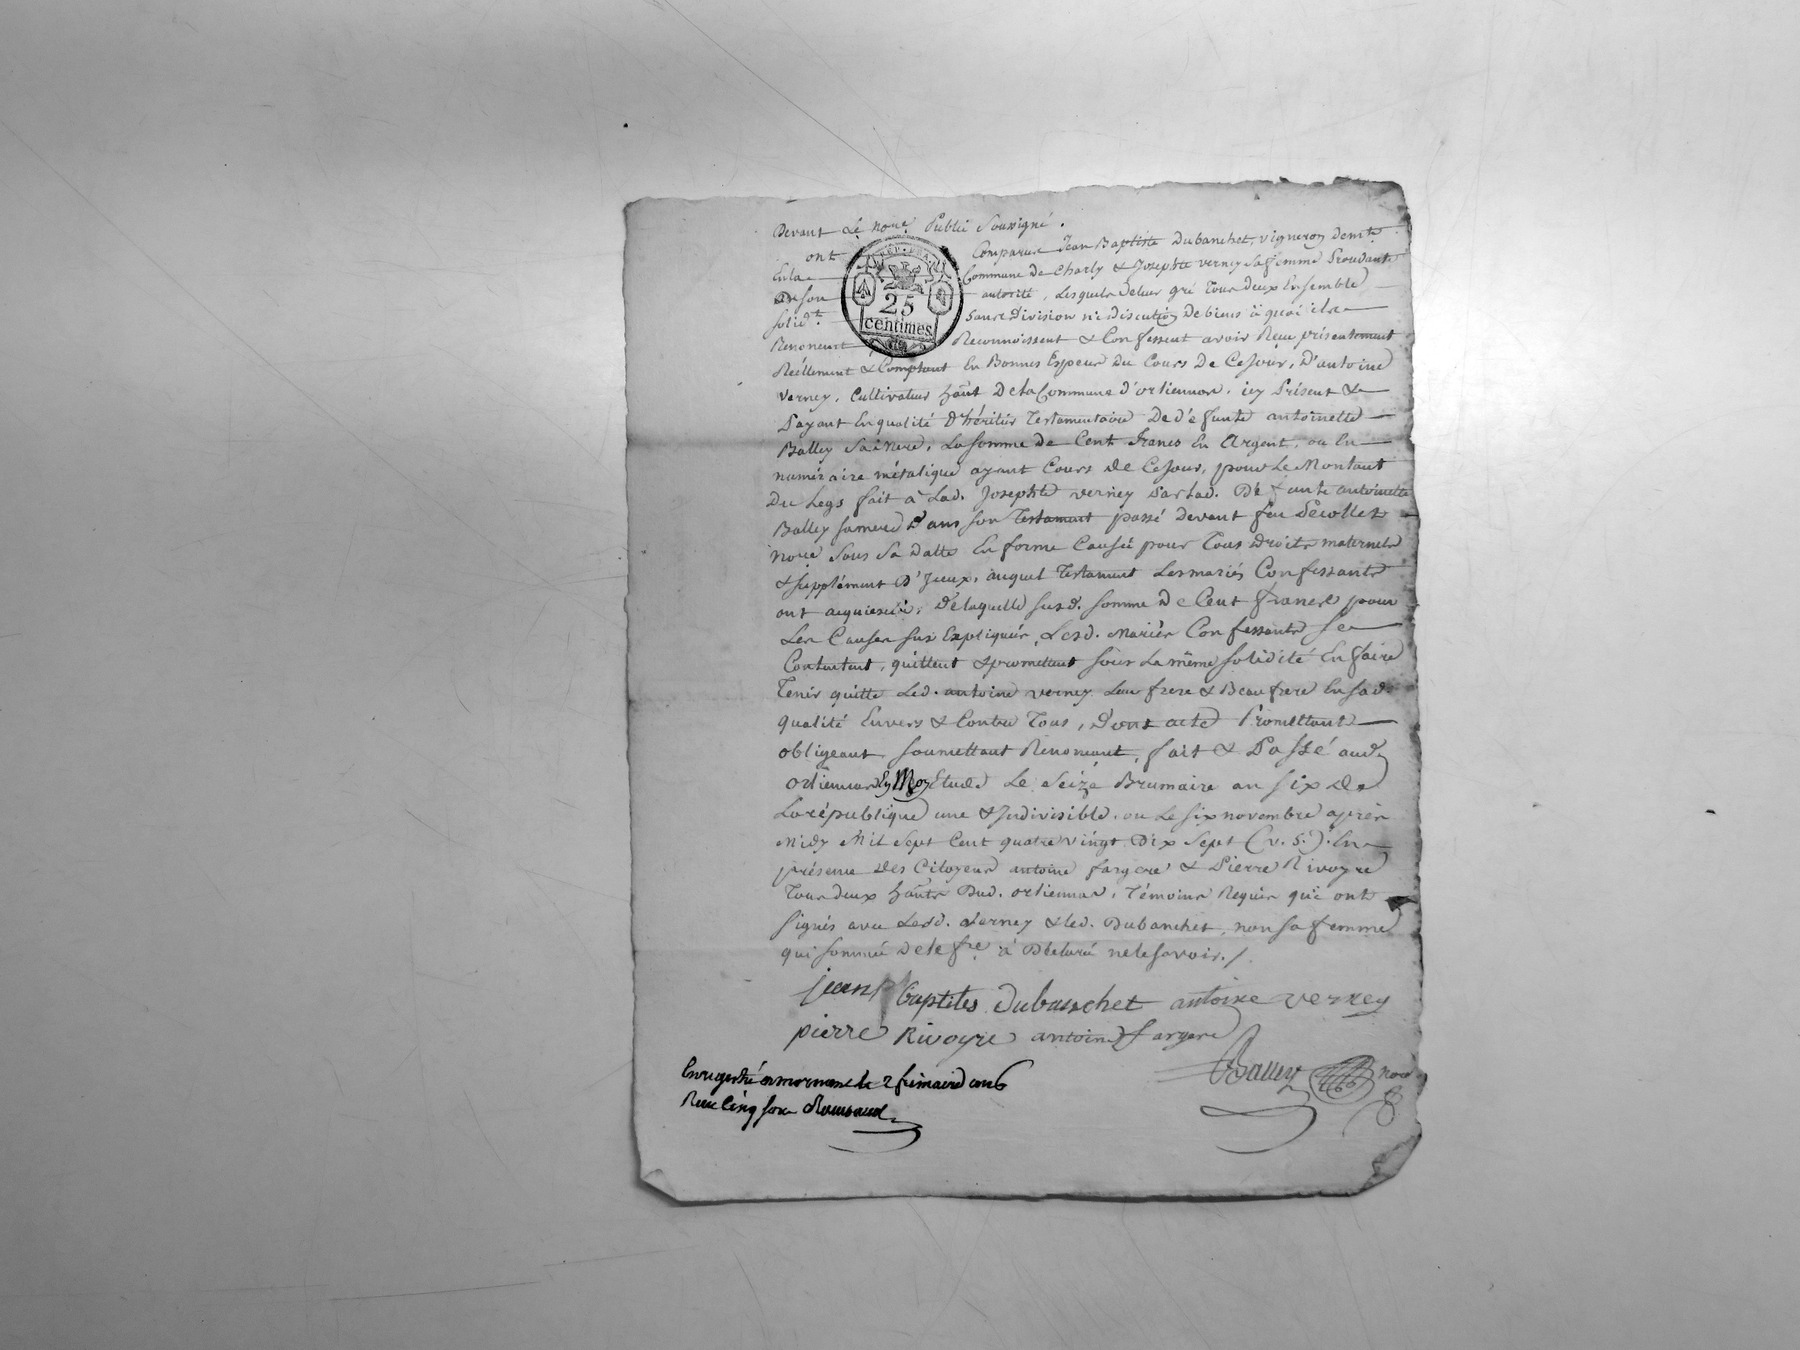 Devant Le nore. Public Soussigné.
ont Comparus Jean Baptiste Dubanchet, vigneron demt.
En la Commune de Charly & Josephte verney sa femme Procédant
de son autorité, Lesquels de leur gré Tous deux Ensemble
solidt. sans Division ni Discution de biens à quoi ils
Renoncent Reconnoissent & Confessent avoir Reçu présentement
Réellement & Comptant En Bonnes Espèces du Cours De Ce Jour, D'antoine
verney, Cultivateur hant De la Commune d'orliennas, icy Présent &
Payant En qualité D'héritier Testamentaire De défunte antoinette
Balley Sa Mere, La somme de Cent francs En Argent, ou En
numéraire métalique ayant Cours de Ce Jour, pour Le Montant
Du Legs fait à Lad. Josephte verney Par lad. Défunte antoinette
Balley sa mere Dans son Testament passé devant feu Décollet
nore. Sous Sa Datte En forme Causé pour Tous Droits maternels
& supplément D'Yceux, auquel Testament Les mariés Confessants
ont acquiescé, De laquelle susd. somme De Cent francs pour
Les Causes sus Expliquées, Lesd. Mariés Confessants se
Contentent, quittent & promettent sous La même solidité En faire
Tenir quitte Led. antoine verney Leur frere & Beaufrere En sad.
qualité Envers & Contre Tous, Dont acte Promettant
obligeant, soumettant Renonçant, fait & Passé aud.
orliennas En Mon Etude Le Seize Brumaire an six de
La république une & Indivisible, ou Le six novembre après
Midy Mil Sept Cent quatre vingt Dix Sept (v. s.). En
présence des Citoyens antoine fargere & Pierre Rivoyre
Tous deux hants Dud. orliennas, Témoins Requis qui ont
signés avec Led. Verney & led. Dubanchet, non sa femme
qui sommée De le fre. à Déclaré ne le savoir./.
jean baptites dubanchet antoine verney
pierre Rivoyre antoine fargere
Balley nore
Enregistré a mornant le 2 frimaire an 6
Reçu Cinq sous
REP. FRA.
25
centimes